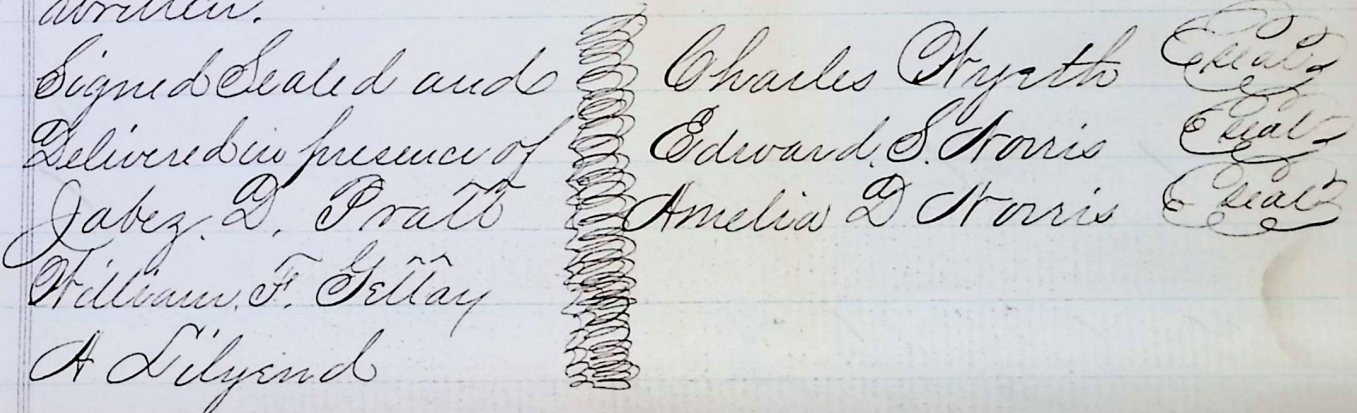 written.
Signed Sealed and
Delivered in presence of
Jabez. D. Pratt
William. F. Gettay
A Lilyend
Charles Wyeth seal
Edward. S. Norris seal
Amelia D Norris seal